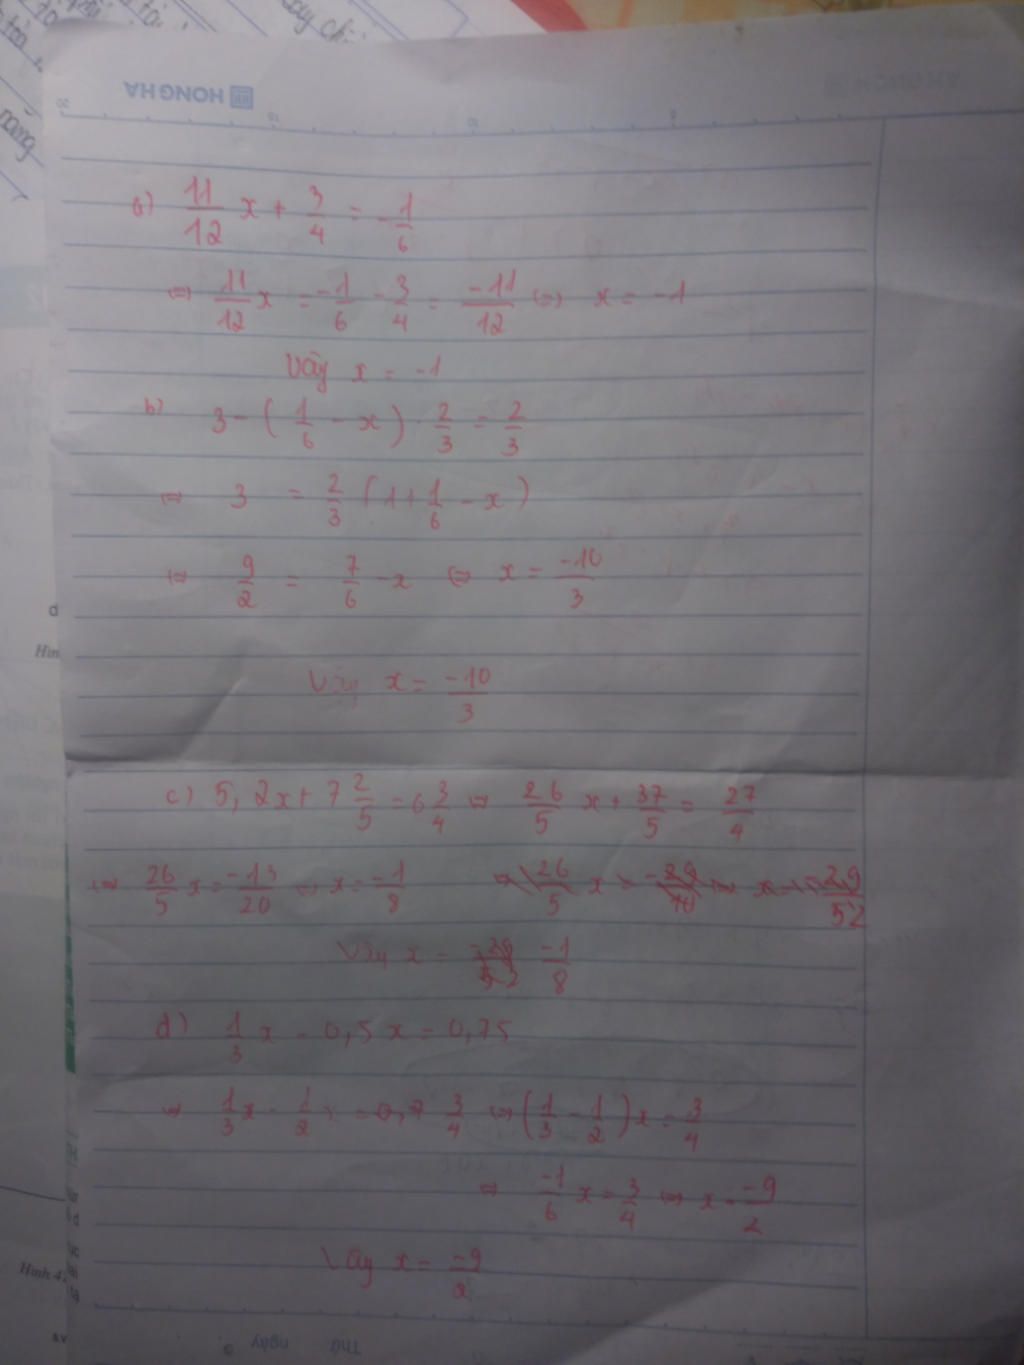 HONG HA
a) 11/12 x + 3/4 = -1/6
⇔ 11/12 x = -1/6 - 3/4 = -11/12 ⇔ x = -1
Vậy x = -1
b) 3 - (1/6 - x) . 2/3 = 2/3
⇔ 3 = 2/3 (1 + 1/6 - x)
⇔ 9/2 = 7/6 - x ⇔ x = -10/3
Vậy x = -10/3
c) 5,2x + 7 2/5 = 6 3/4 ⇔ 26/5 x + 37/5 = 27/4
⇔ 26/5 x = -13/20 ⇔ x = -1/8
Vậy x = -1/8
d) 1/3 x - 0,5x = 0,75
⇔ 1/3 x - 1/2 x = 3/4 ⇔ (1/3 - 1/2)x = 3/4
⇔ -1/6 x = 3/4 ⇔ x = -9/2
Vậy x = -9/2
Thứ ngày
Hình 4